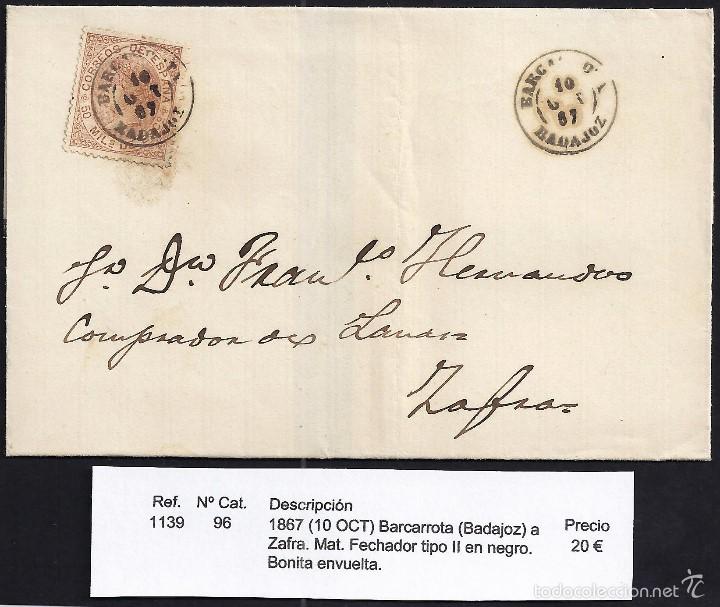 CORREOS DE ESPAÑA
50 MILs DE
10
67
BADAJOZ
10
67
BADAJOZ
Sr. Dn. Franco. Hernandes
Comprador de Lanas
Zafra
Ref. Nº Cat. Descripción Precio
1139 96 1867 (10 OCT) Barcarrota (Badajoz) a 20 €
Zafra. Mat. Fechador tipo II en negro.
Bonita envuelta.
todocoleccion